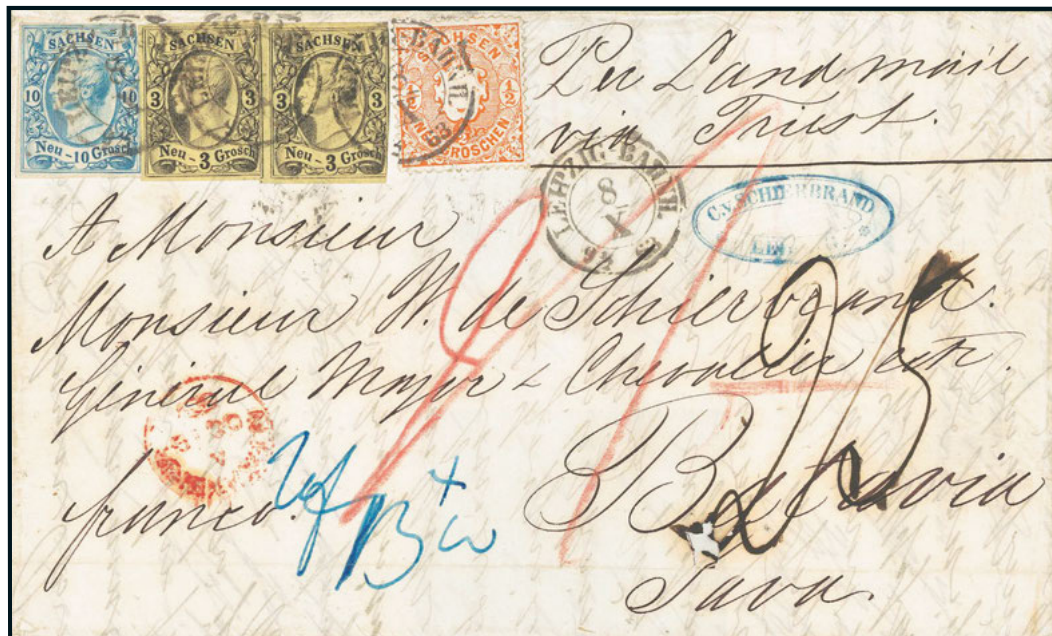 SACHSEN
10 10
Neu-10 Grosch
SACHSEN
3 3
Neu-3 Grosch
SACHSEN
3 3
Neu-3 Grosch
SACHSEN
1/2
NEU GROSCHEN
Per Landmail
via Triest.
LEIPZIG BAHNH.
8
X
C.v.SCHIERBRAND
A Monsieur
Monsieur W. de Schierbrand.
Général Major & Chevalier etc.
Batavia
franco.
Java.